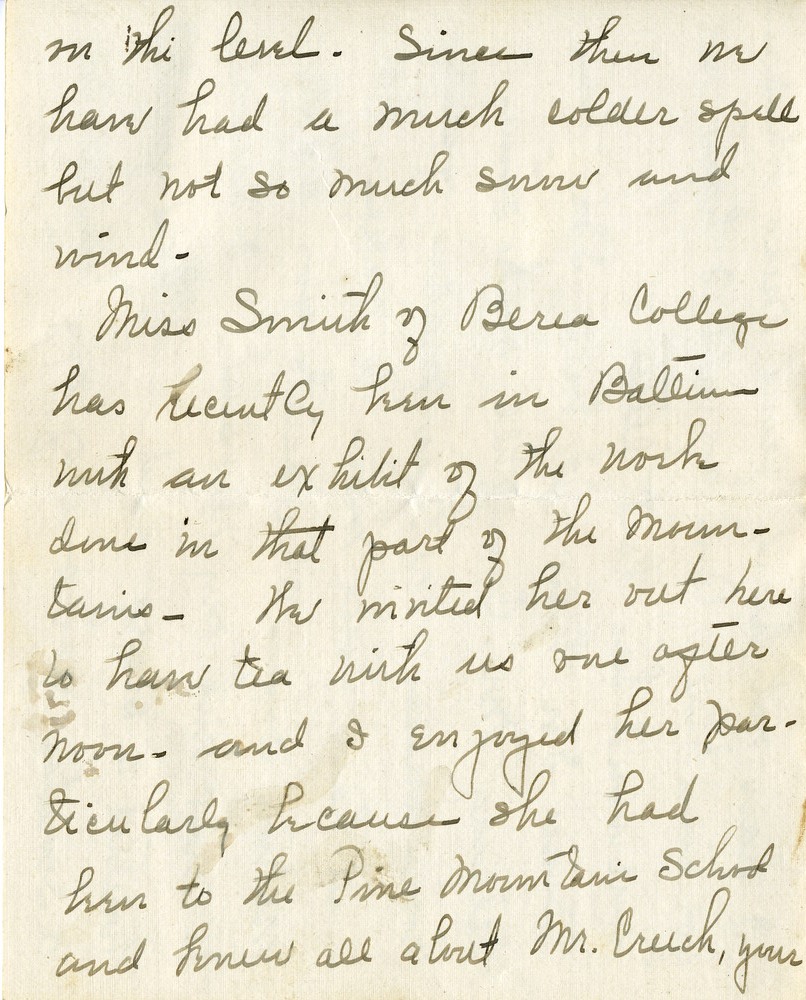 on the level. Since then we
have had a much colder spell
but not so much snow and
wind-
Miss Smith of Berea College
has recently been in Baltimore
with an exhibit of the work
done in that part of the moun-
tains- We invited her out here
to have tea with us one after
noon- and I enjoyed her par-
ticularly because she had
been to the Pine Mountain School
and knew all about Mr. Creech, your